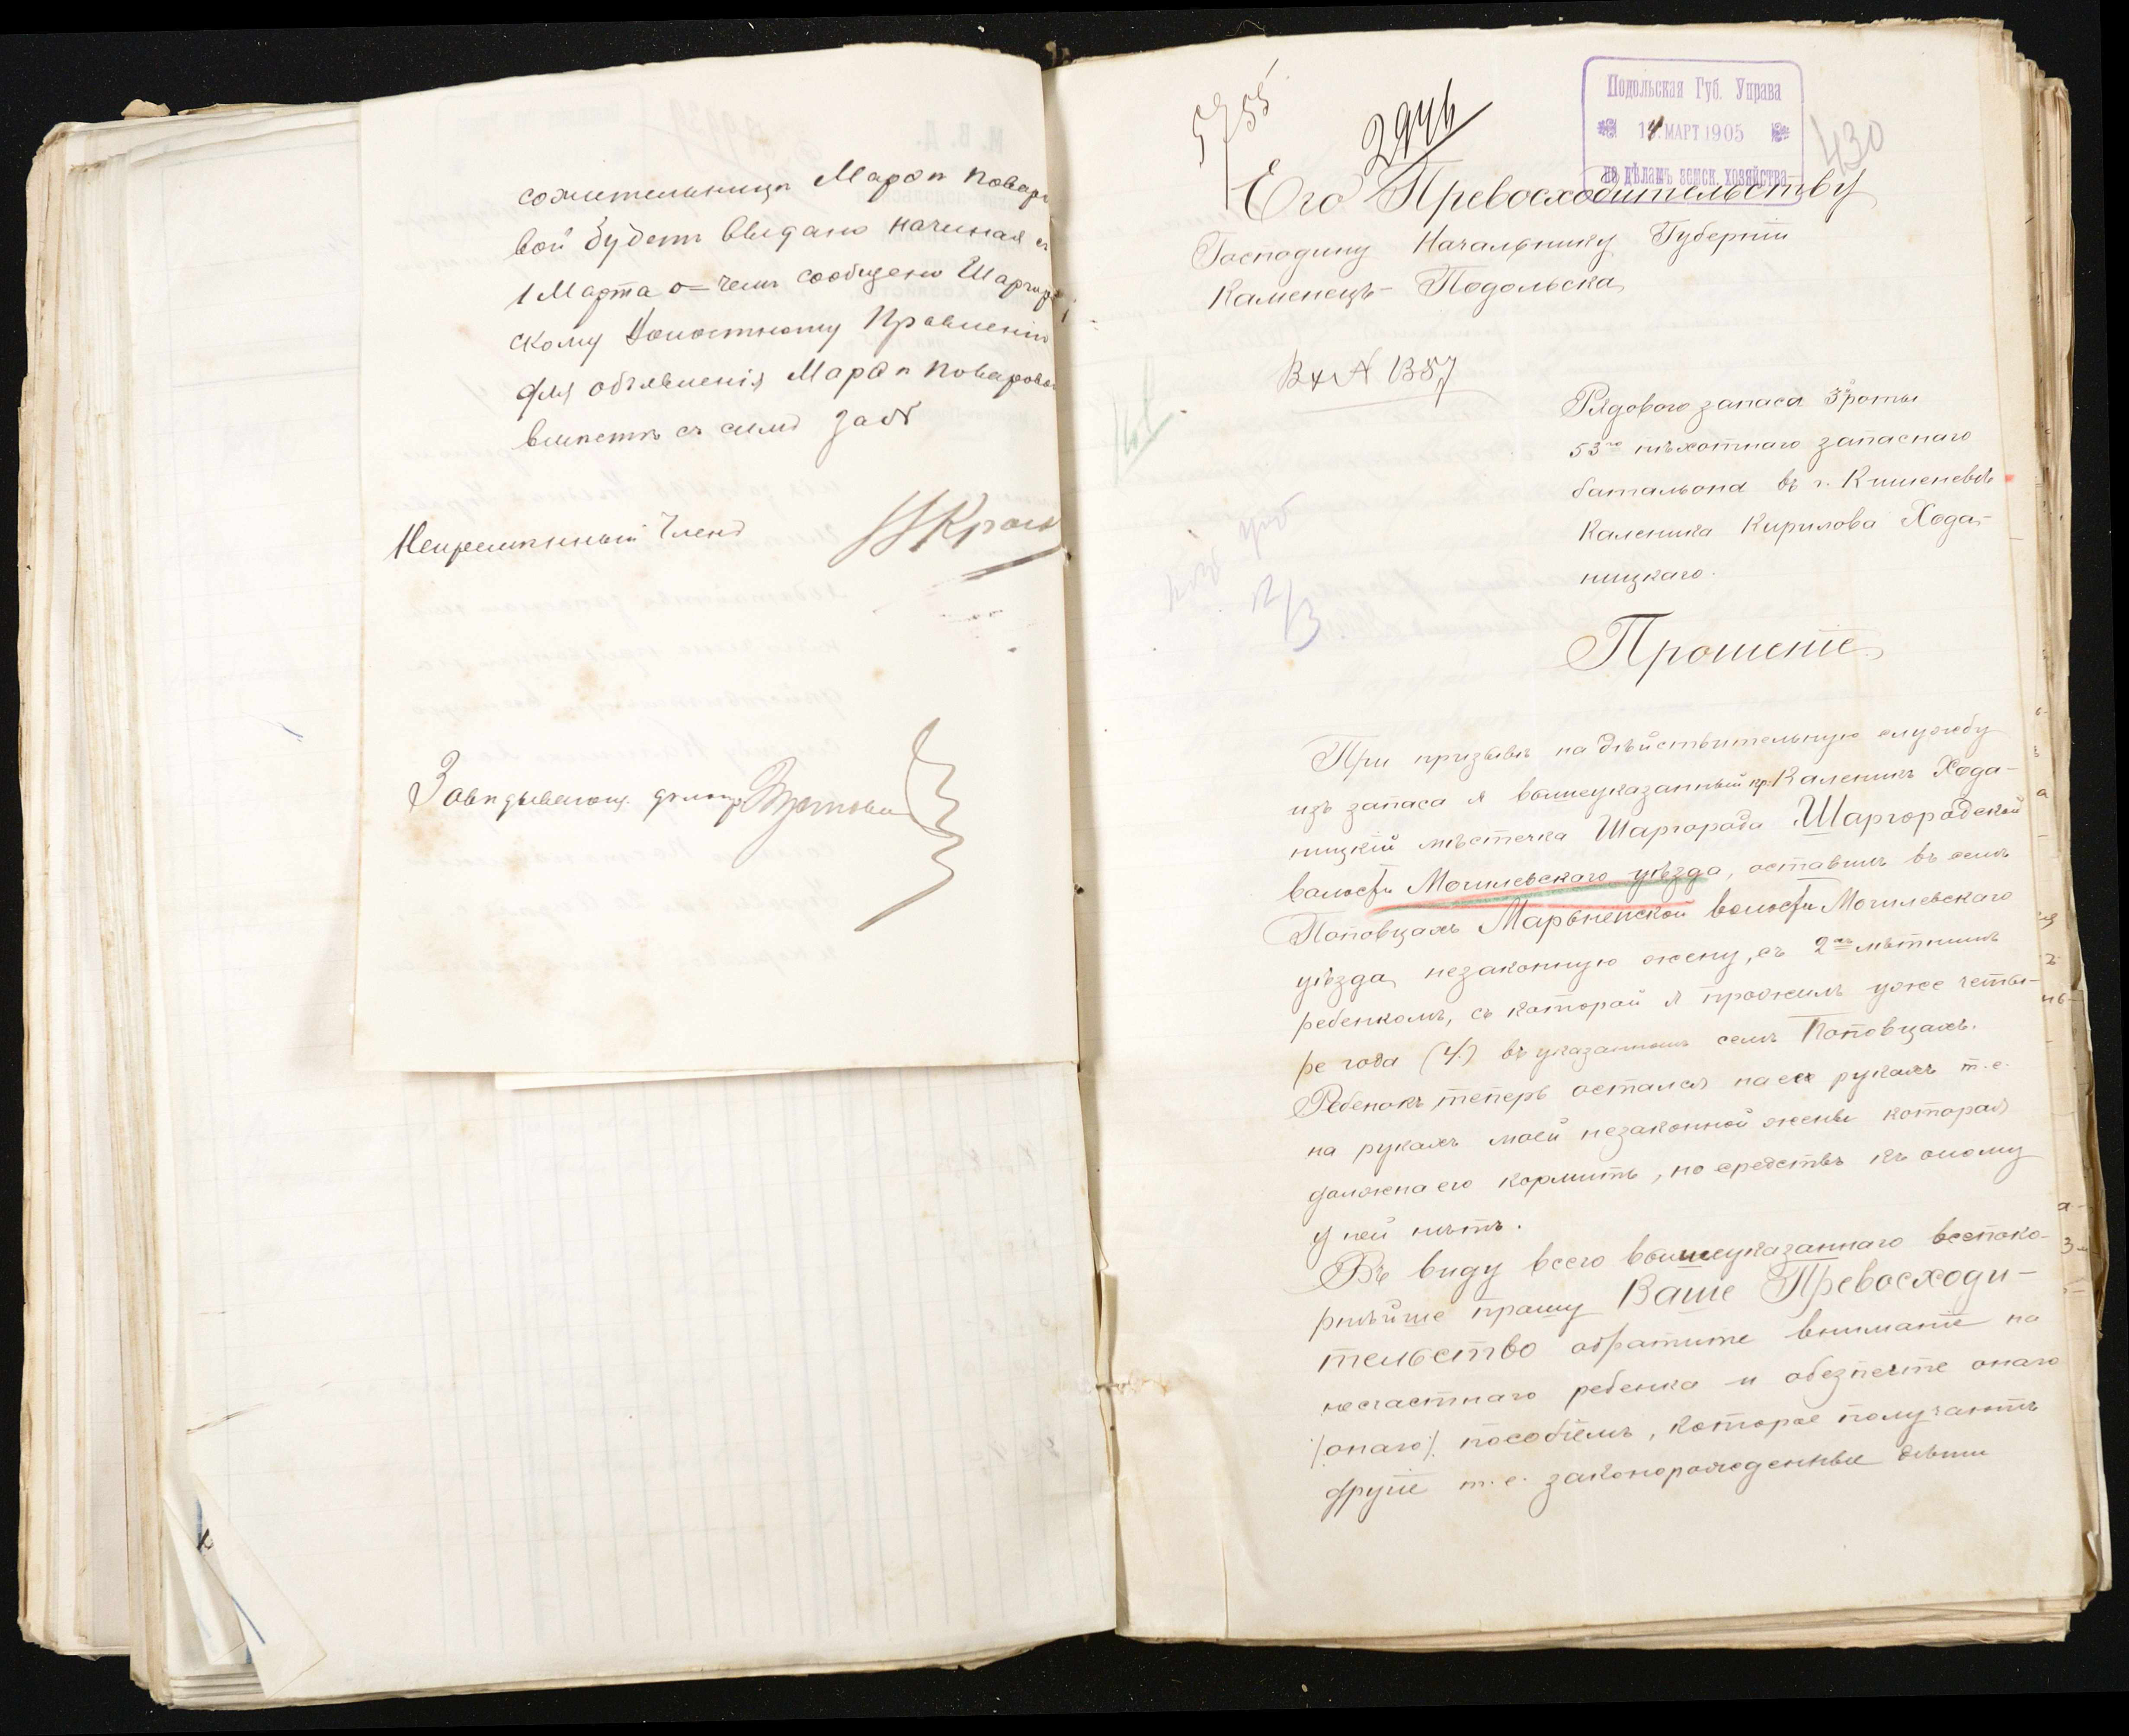 сожительницѣ Марѳѣ Поваро
вой будетъ выдано начиная съ
1 Марта о чемъ сообщено Шаргород
скому Волостному Правленію
для объявленія Марѳѣ Поваровой
вмѣстѣ съ симъ за №
Непремѣнный Членъ
Завѣдывающ. дѣлопр.
5755
2946
Подольская Губ. Управа
14 МАРТ 1905
по дѣламъ земск. хозяйства
430
Его Превосходительству
Господину Начальнику Губерніи
Каменецъ-Подольска
Вх № 1357
Рядового запаса 3й роты
53го пѣхотнаго запаснаго
батальона въ г. Кишеневѣ
Каленика Кирилова Хода-
ницкаго.
12/3
Прошеніе
При призывѣ на дѣйствительную службу
изъ запаса я вышеуказанный кр. Каленикъ Хода-
ницкій мѣстечка Шаргорода Шаргородской
валости Могилевскаго уѣзда, оставилъ въ селѣ
Поповцахъ Марьненской волости Могилевскаго
уѣзда, незаконную жену, съ 2хъ лѣтнимъ
ребенкомъ, съ которой я прожилъ уже четы-
ре года (4.) въ указанномъ селѣ Поповцахъ.
Ребенокъ теперь остался на ея рукахъ т.е.
на рукахъ моей незаконной жены которая
должна его кормить, но средствъ къ оному
у ней нѣтъ.
Въ виду всего вышеуказаннаго всепоко-
рнѣйше прошу Ваше Превосходи-
тельство обратите вниманіе на
несчастнаго ребенка и обезпечте онаго
/:онаго:/ пособіемъ, которое получаютъ
другіе т.е. законорожденные дѣти